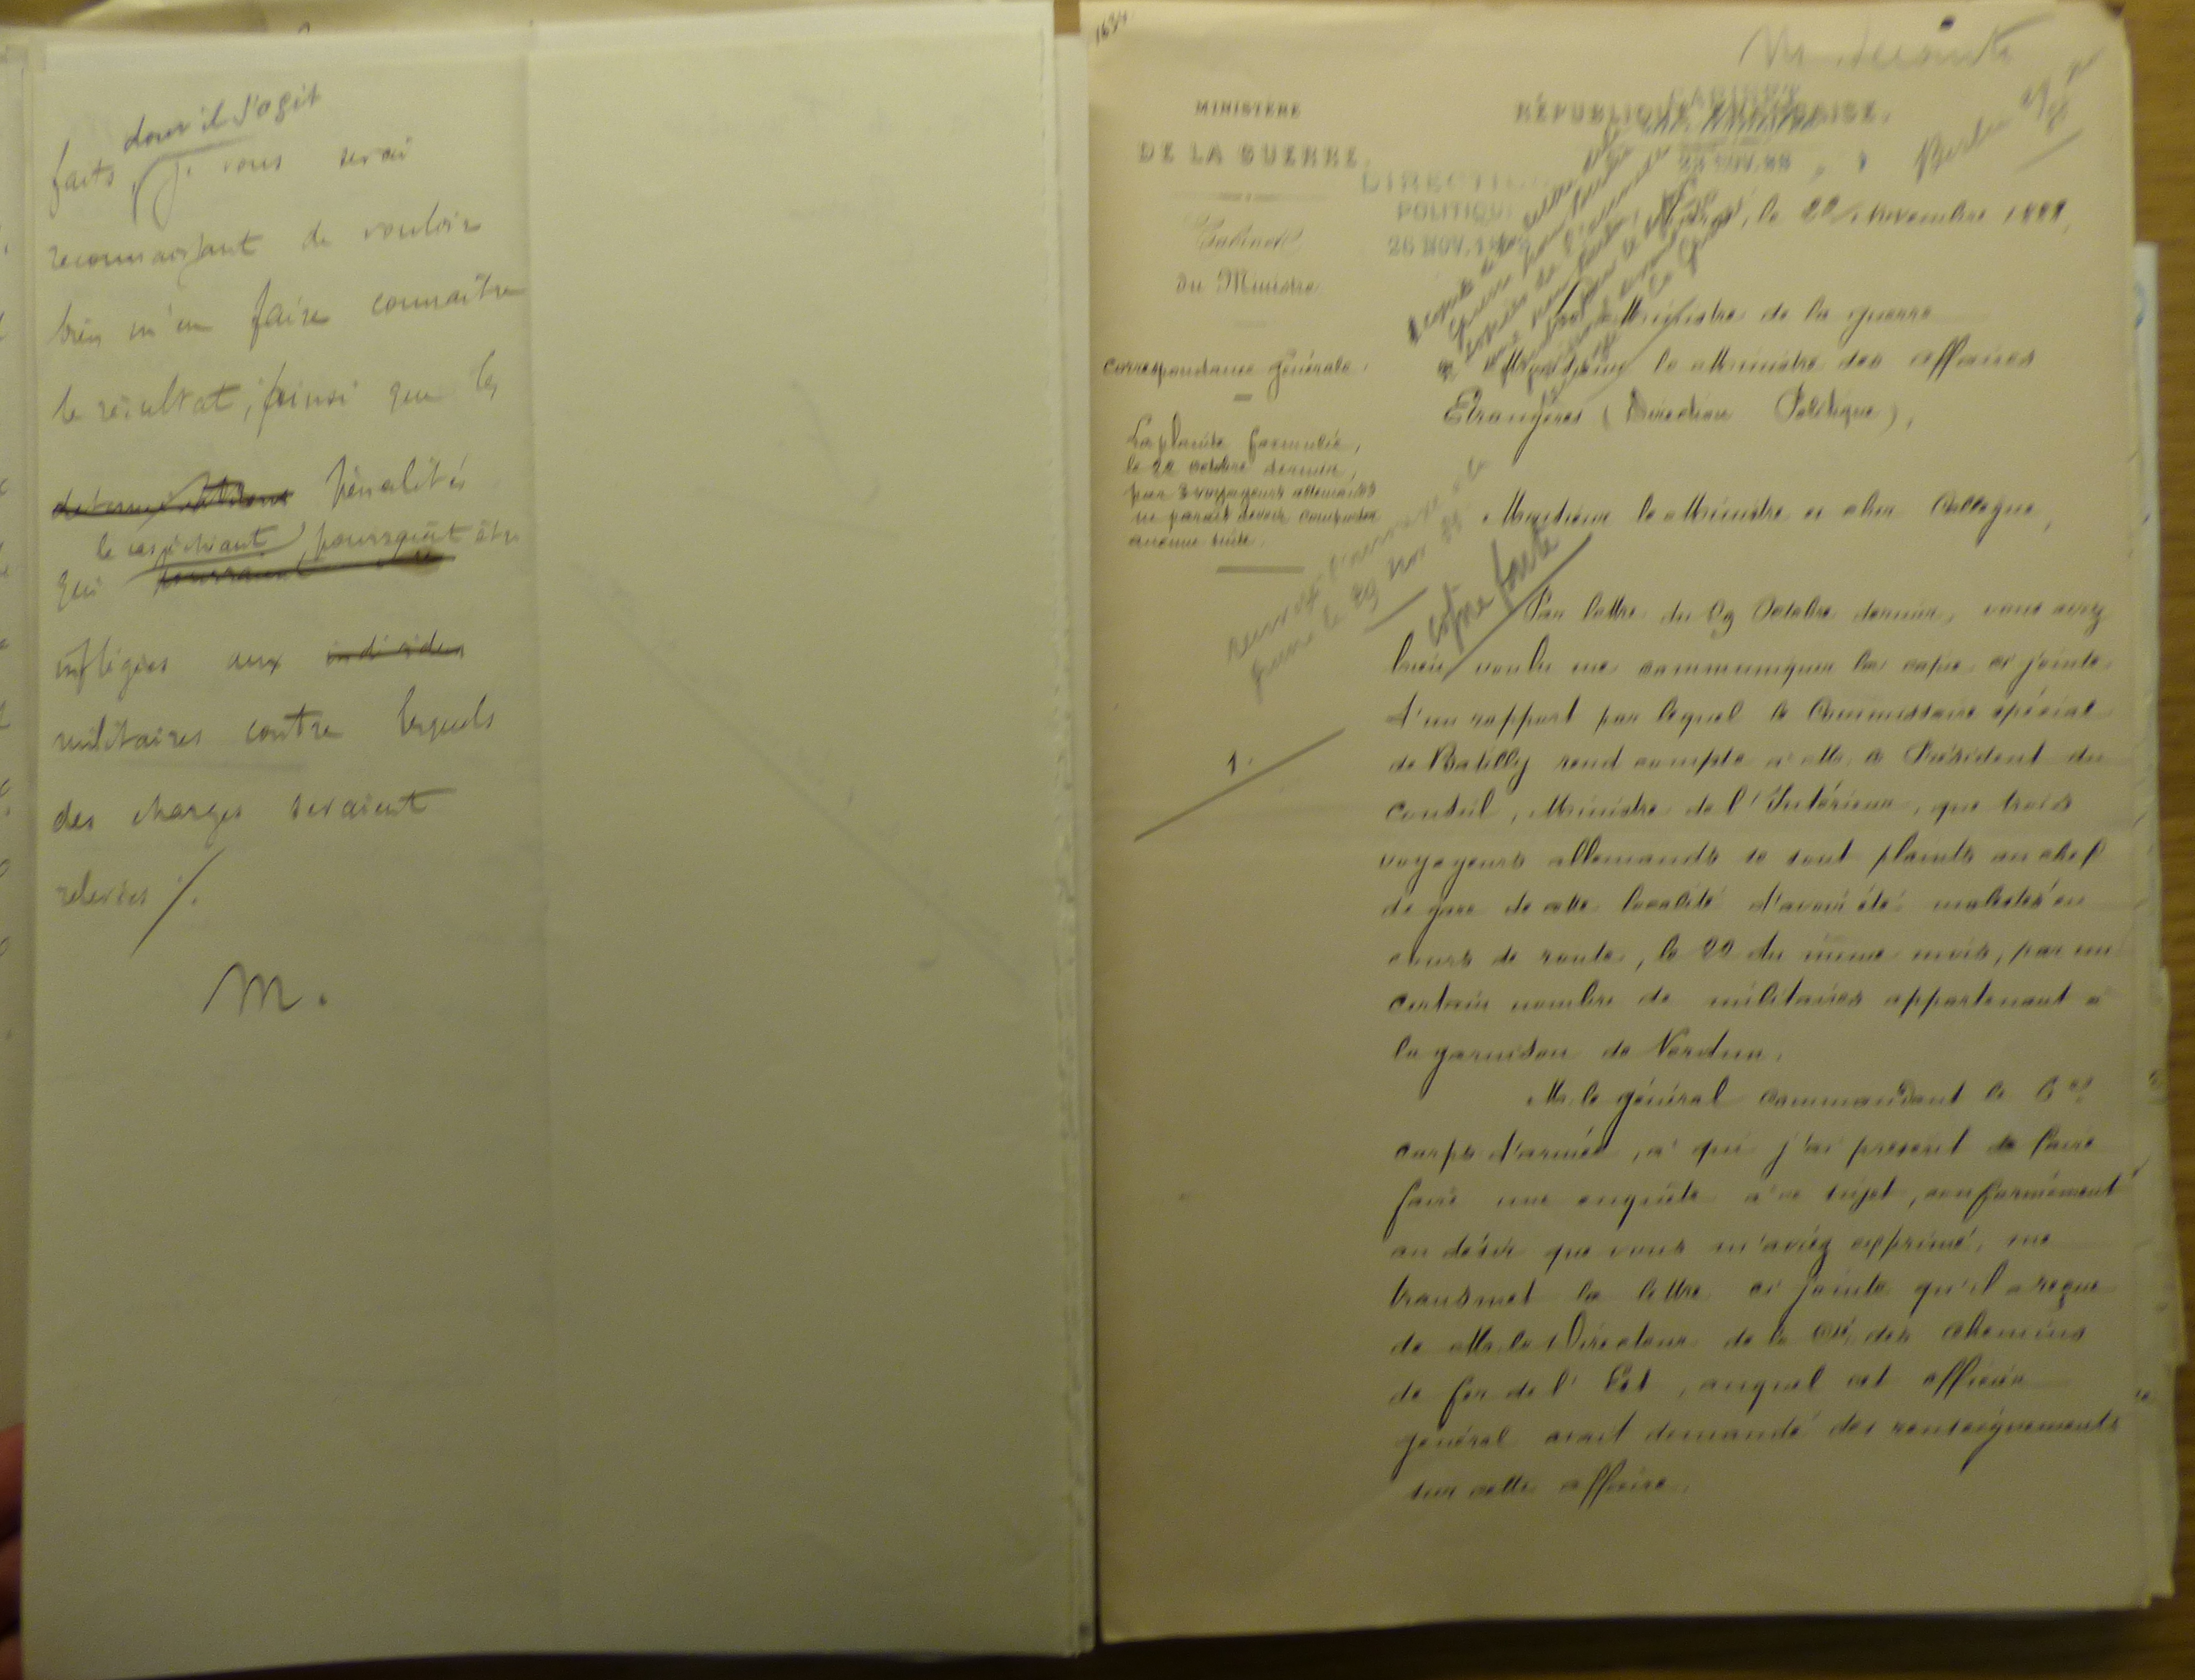 dont il s'agit
faits, je vous serai
reconnaissant de vouloir
bien m'en faire connaître
le résultat, ainsi que les
pénalités
le cas échéant, pourraient être
qui
infligées aux
militaires contre lesquels
des charges seraient
relevées /.
M.
MINISTÈRE
DE LA GUERRE
Cabinet
du Ministre
Correspondance générale.
La plainte formulée,
le 22 octobre dernier,
par 3 voyageurs allemands
ne paraît devoir comporter
aucune suite.
1.
RÉPUBLIQUE FRANÇAISE.
CABINET
DIRECTION
POLITIQUE
26 NOV.
Berlin
Paris, le 22 Novembre 1888,
Le Ministre de la guerre
à Monsieur le Ministre des affaires
Etrangères (Direction Politique),
Monsieur le Ministre et cher Collègue,
copie faite
Par lettre du 29 Octobre dernier, vous avez
bien voulu me communiquer la copie ci jointe
d'un rapport par lequel le Commissaire spécial
de Batilly rend compte à Mr. le Président du
Conseil, Ministre de l'Intérieur, que trois
voyageurs allemands se sont plaints au chef
de gare de cette localité d'avoir été molestés en
cours de route, le 22 du même mois, par un
certain nombre de militaires appartenant à
la garnison de Verdun.
Mr. le général Commandant le 6e
corps d'armée, à qui j'ai prescrit de faire
faire une enquête à ce sujet, conformément
au désir que vous m'aviez exprimé, me
transmet la lettre ci jointe qu'il a reçue
de Mr. le Directeur de la Cie des Chemins
de fer de l'Est, auquel cet officier
général avait demandé des renseignements
sur cette affaire.